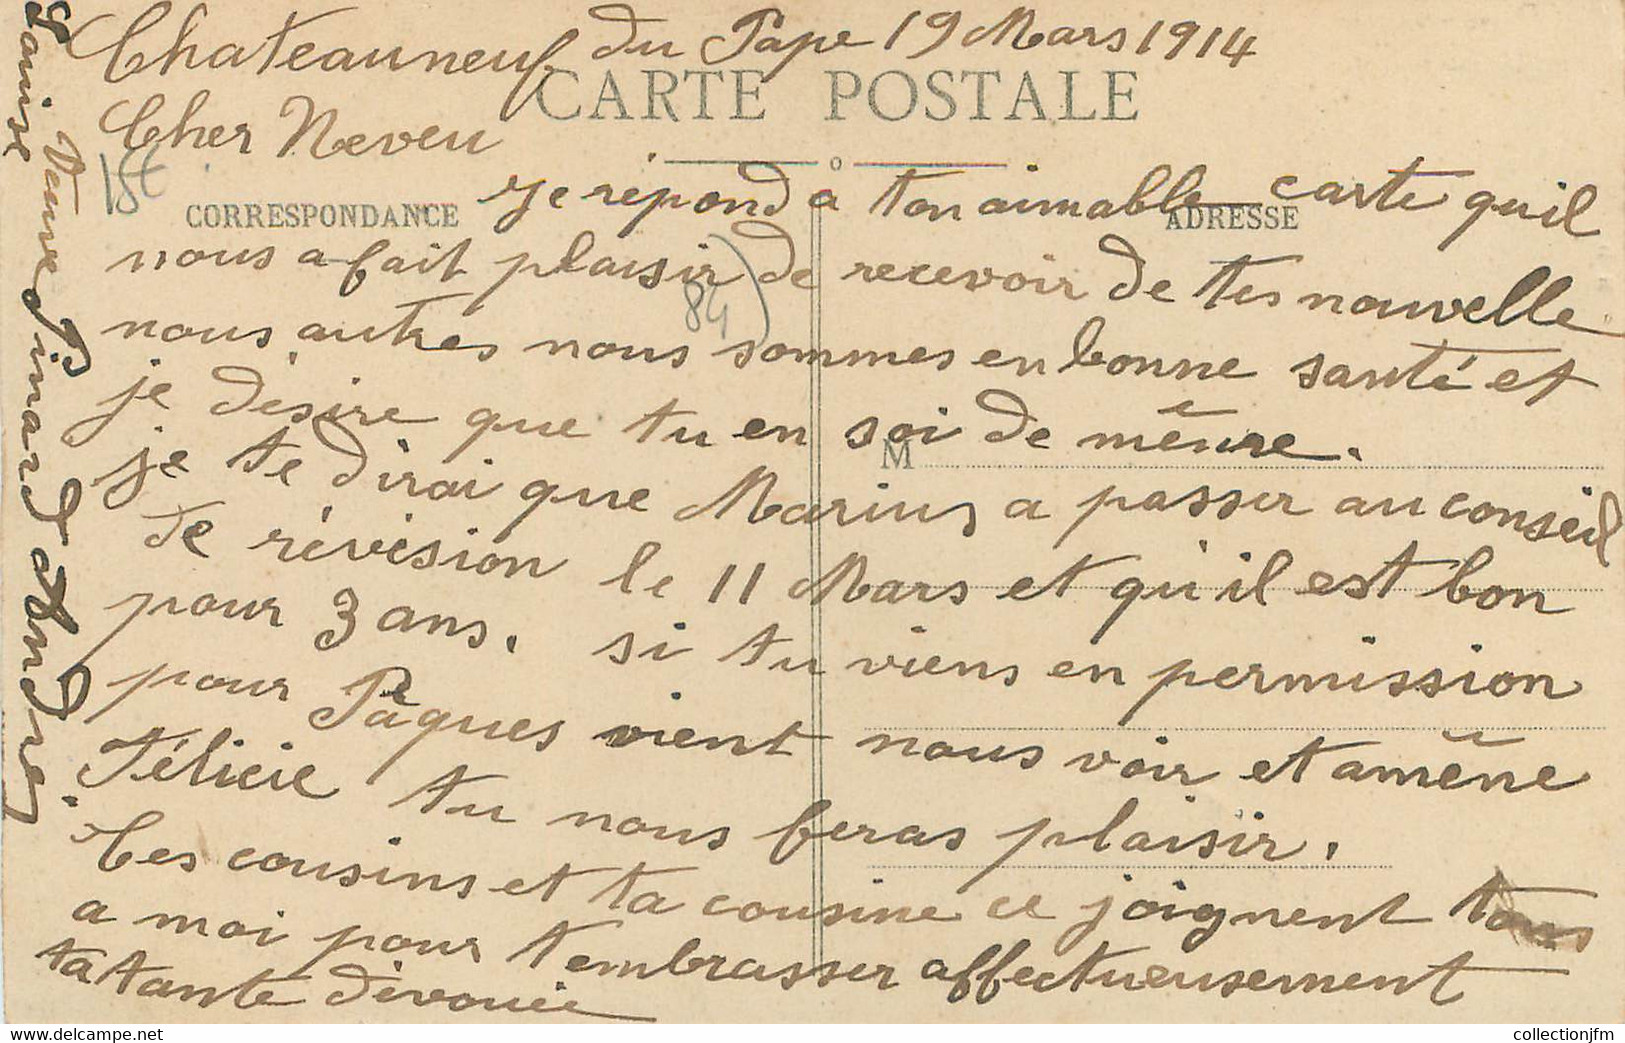 Chateauneuf du Pape 19 Mars 1914
CARTE POSTALE
Cher Neveu
CORRESPONDANCE
ADRESSE
Je répond a ton aimable carte qu'il
nous a fait plaisir de recevoir de tes nouvelle
84
nous autres nous sommes en bonne santé et
je désire que tu en soi de même.
M
je te dirai que Marius a passer au conseil
de révision le 11 Mars et qu'il est bon
pour 3 ans. si tu viens en permission
pour Pâques vient nous voir et amêne
Félicie tu nous feras plaisir.
Tes cousins et ta cousine ce joignent tous
a moi pour t'embrasser affectueusement
ta tante dévouée
Veuve Pinard André
collectionjfm